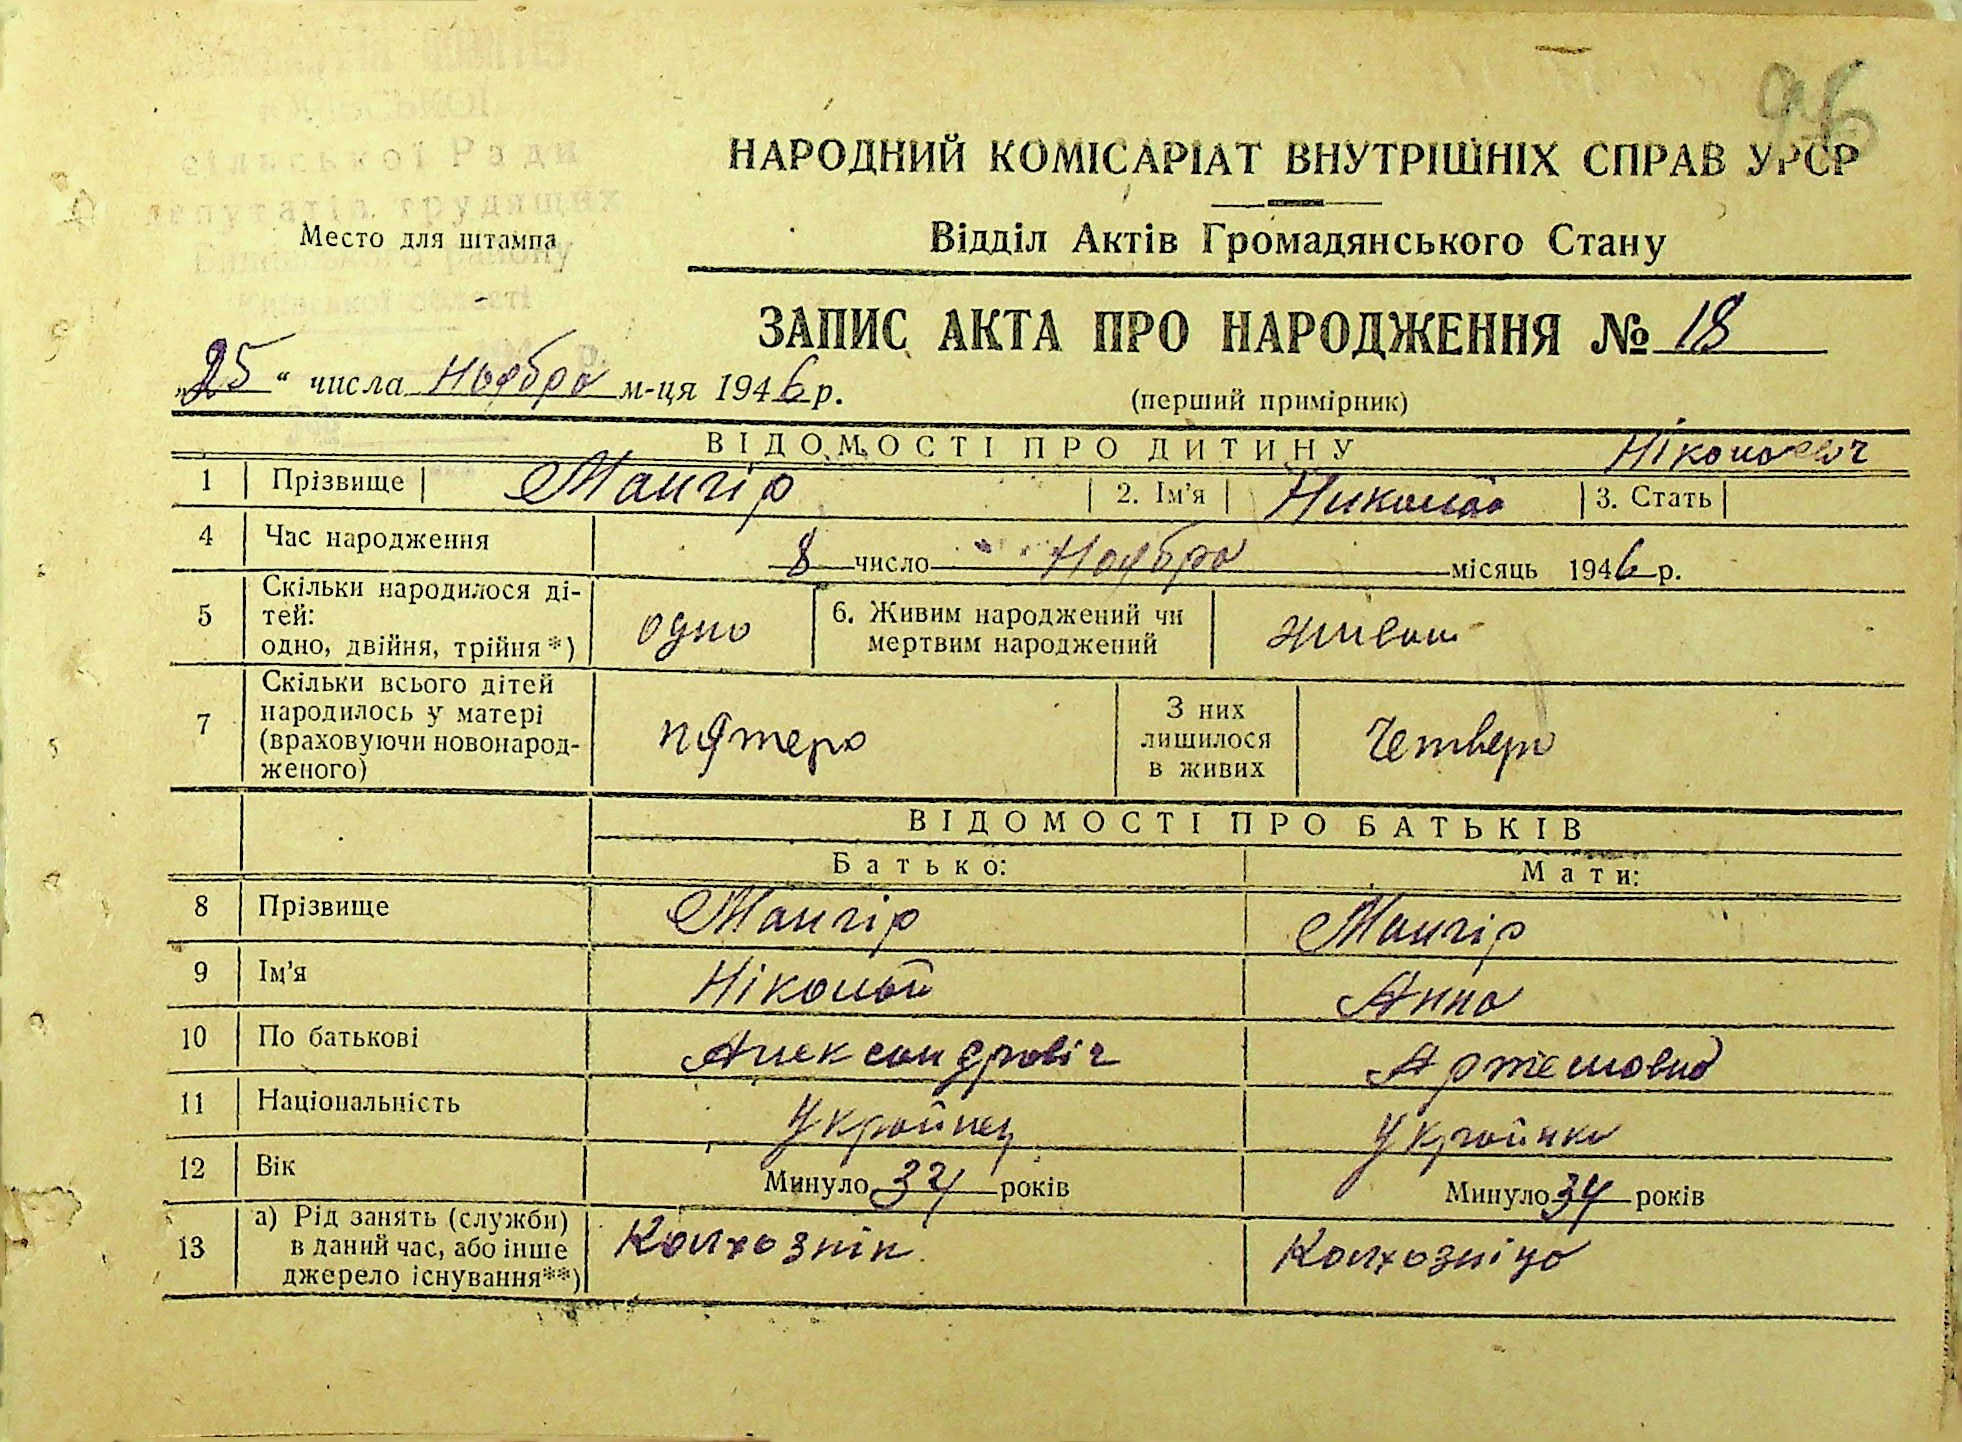 96
НАРОДНИЙ КОМІСАРІАТ ВНУТРІШНІХ СПРАВ УРСР
сільської Ради
депутатів трудящих
Место для штампа
району
Київської області
Відділ Актів Громадянського Стану
ЗАПИС АКТА ПРО НАРОДЖЕННЯ № 18
„25“ числа Ноября м-ця 1946 р.
(перший примірник)
ВІДОМОСТІ ПРО ДИТИНУ
Ніколаевич
1 Прізвище Мангір 2. Ім'я Николай 3. Стать
4 Час народження 8 число Ноября місяць 1946 р.
5 Скільки народилося ді-
тей:
одно, двійня, трійня *) одно 6. Живим народжений чи
мертвим народжений живим
7 Скільки всього дітей
народилось у матері
(враховуючи новонарод-
женого) пятеро З них
лишилося
в живих Четверо
ВІДОМОСТІ ПРО БАТЬКІВ
Батько: Мати:
8 Прізвище Мангір Мангір
9 Ім'я Ніколай Анна
10 По батькові Александровіч Артемовна
11 Національність Украйнец Украйнка
12 Вік Минуло 34 років Минуло 34 років
13 а) Рід занять (служби)
в даний час, або інше
джерело існування**) Колхознік Колхозніца